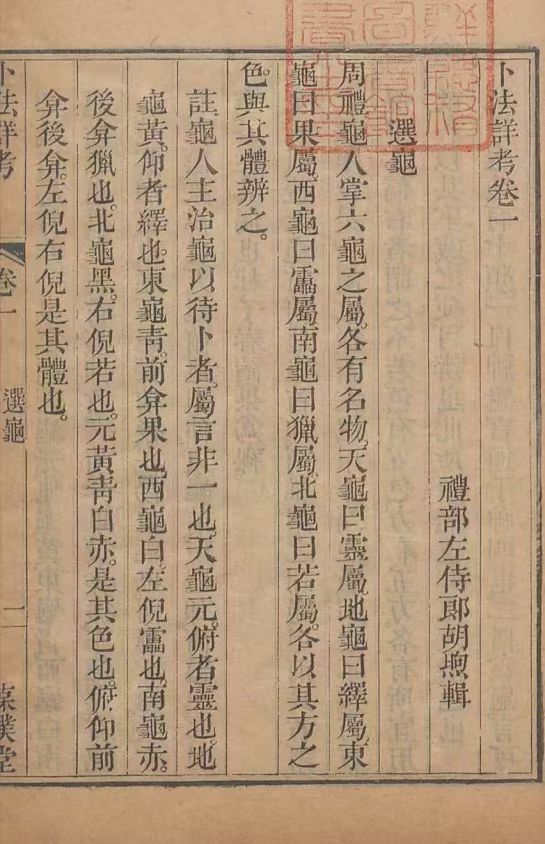 卜法詳考卷一
禮部左侍郎胡煦輯
選龜
周禮龜人掌六龜之屬。各有名物。天龜曰靈屬。地龜曰繹屬。東
龜曰果屬。西龜曰靁屬。南龜曰獵屬。北龜曰若屬。各以其方之
色。與其體辨之。
註。龜人主治龜以待卜者。屬言非一也。天龜元。俯者靈也。地
龜黃。仰者繹也。東龜青。前弇果也。西龜白。左倪靁也。南龜赤。
後弇獵也。北龜黑。右倪若也。元黃青白赤。是其色也。俯仰前
弇後弇。左倪右倪是其體也。
卜法詳考
卷一
選龜
一
葆璞堂